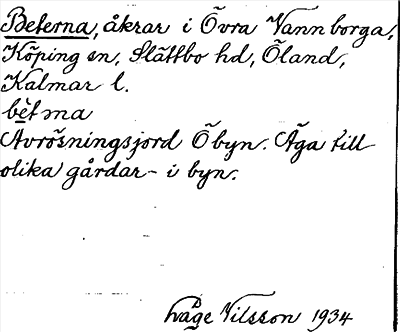 Beterna, åkrar i Övra Vannborga,
Köping sn, Slättbo hd, Öland,
Kalmar l.
bètṇa
Avrösningsjord Ö byn. Äga till
olika gårdar i byn.
Nilsson 1934